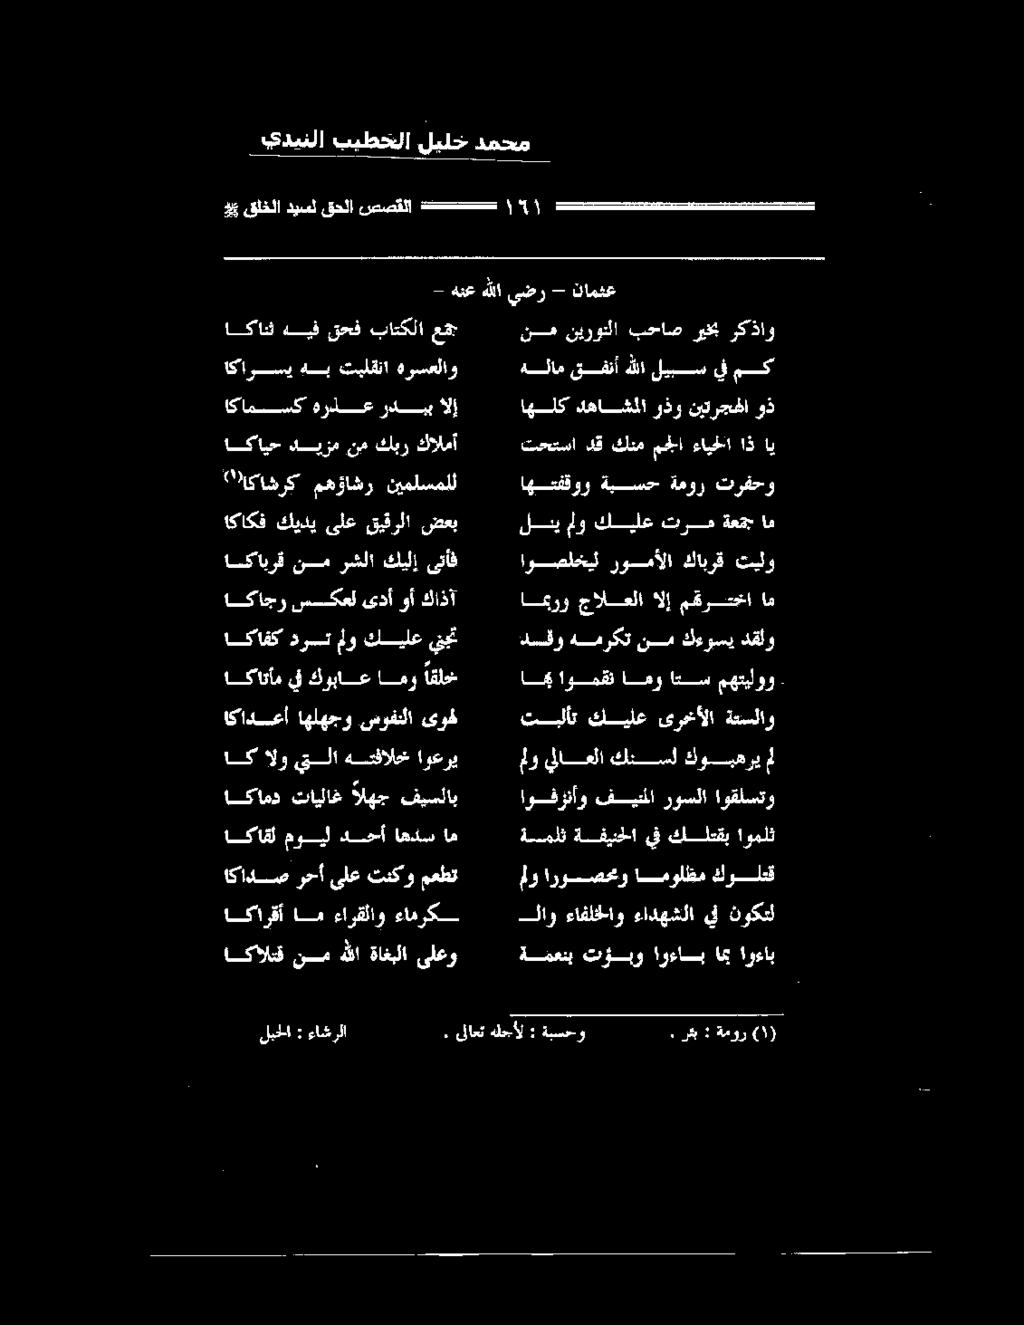 محمد خليل الخطيب النيدي
القصص الحق لسيد الخلق ﷺ ١٦١
عثمان – رضي الله عنه –
واذكر بخير صاحب النورين من جمع الكتاب فحق فيه ثناكا
كم في سبيل الله أنفق ماله والعسره انقلبت به يسراكا
ذو الهجرتين وذو المشاهد كلها إلا ببدر عذره كسماكا
يا ذا الحياء الجم منك قد استحت أملاك ربك من مزيد حياكا
وحفرت رومة حسبة ووقفتها للمسلمين رشاؤهم كرشاكا(١)
ما جمعة مرت عليك ولم ينل بعض الرقيق على يديك فكاكا
وليت قرباك الأمور ليخلصوا فأتى إليك الشر من قرباكا
ما اخترتهم إلا العلاج وربما آذاك أو أدى لعكس رجاكا
ولقد يسوءك من تكرمه وقد تجني عليك ولم ترد كفاكا
ووليتهم ستا وما نقموا بها خلقاً وما عابوك في مأتاكا
والستة الأخرى عليك تألبت لهوى النفوس وجهلها أعداكا
لم يرهبوك لسنك العالي ولم يرعوا خلافته التي ولاكا
وتسلقوا السور المنيف وأنزفوا بالسيف جهلاً غاليات دماكا
ثلموا بقتلك في الحنيفة ثلمة ما سدها أحد ليوم لقاكا
قتلوك مظلوما ومحصورا ولم تطعم وكنت على أحر صداكا
لتكون في الشهداء والخلفاء والـ ـكرماء والقراء ما أقراكا
باءوا بما باءوا وبؤت بنعمة وعلى البغاة الله من قتلاكا
(١) رومة : بئر . وحسبة : لأجله تعالى . الرشاء : الحبل